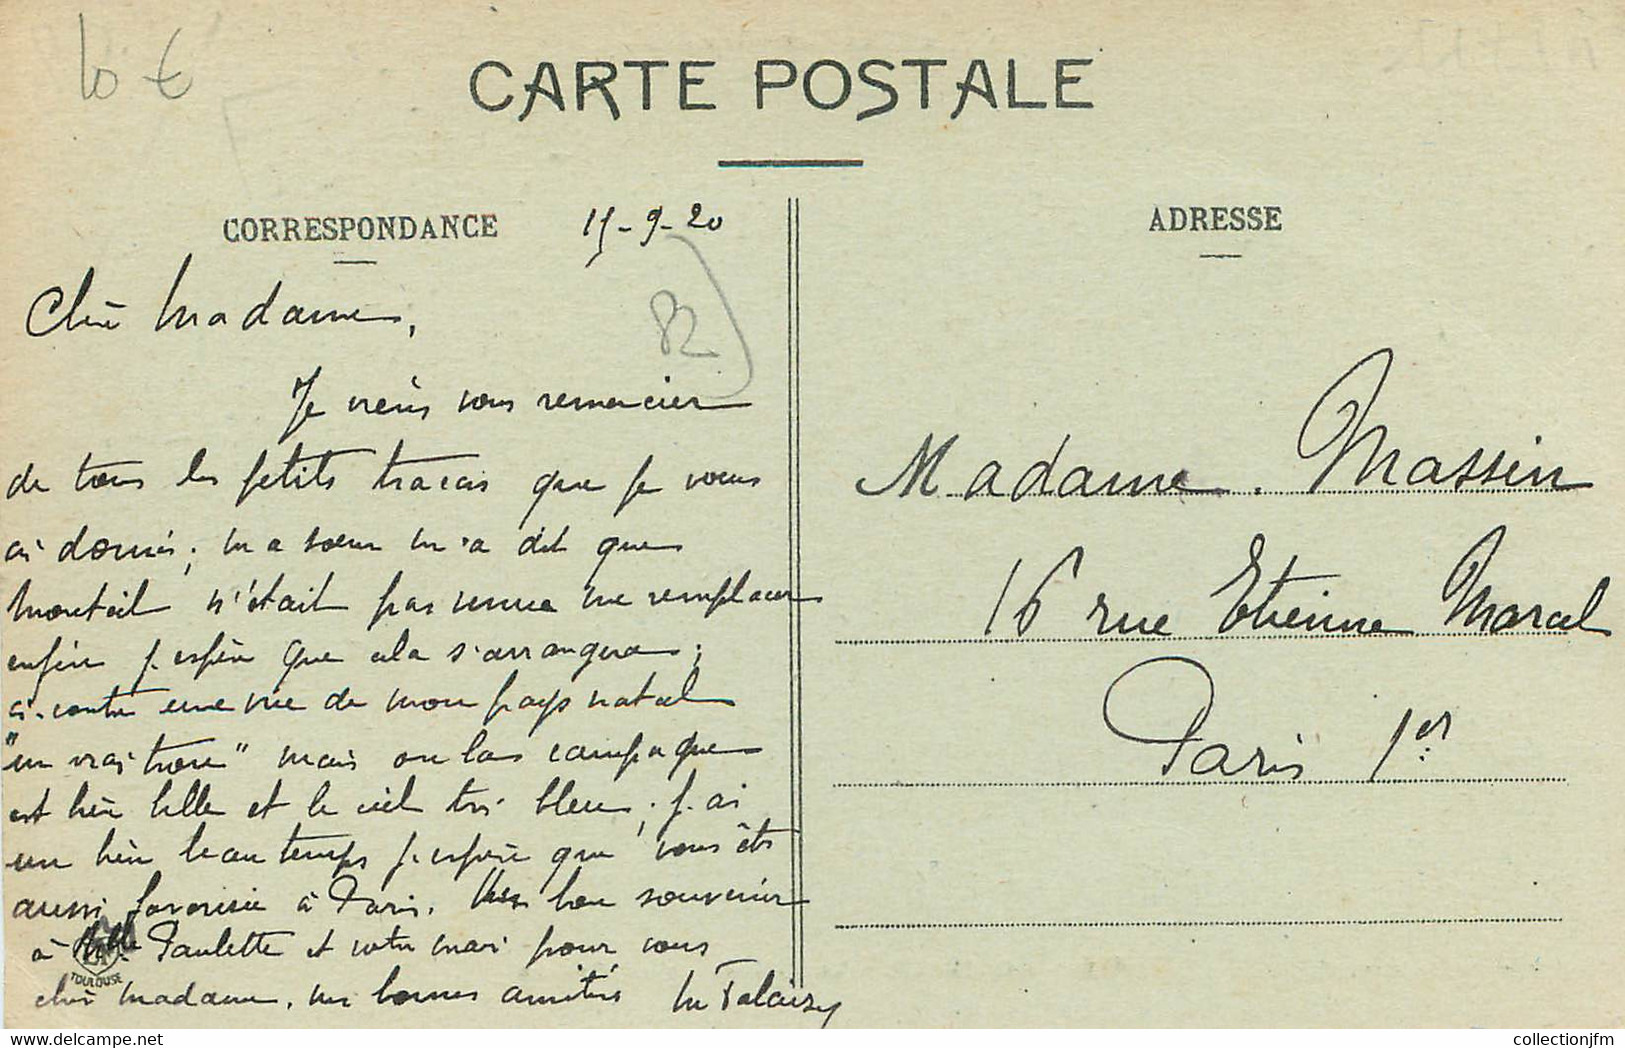 10 €
CARTE POSTALE
CORRESPONDANCE 15-9-20
82
Chère Madame,
Je viens vous remercier
de tous les petits tracas que je vous
ai donnés; ma sœur m'a dit que
n'était pas venue me remplacer
enfin j'espère que cela s'arrangera;
ci-contre une vue de mon pays natal
"un vrai trou" mais où la campagne
est bien belle et le ciel très bleu; j'ai
un bien beau temps j'espère que vous êtes
aussi favorisée à Paris. bon souvenir
à Mlle Paulette et votre mari pour vous
chère Madame, mes bonnes amitiés
TOULOUSE
ADRESSE
Madame. Massin
16 rue Etienne Marcel
Paris 1er
collectionjfm